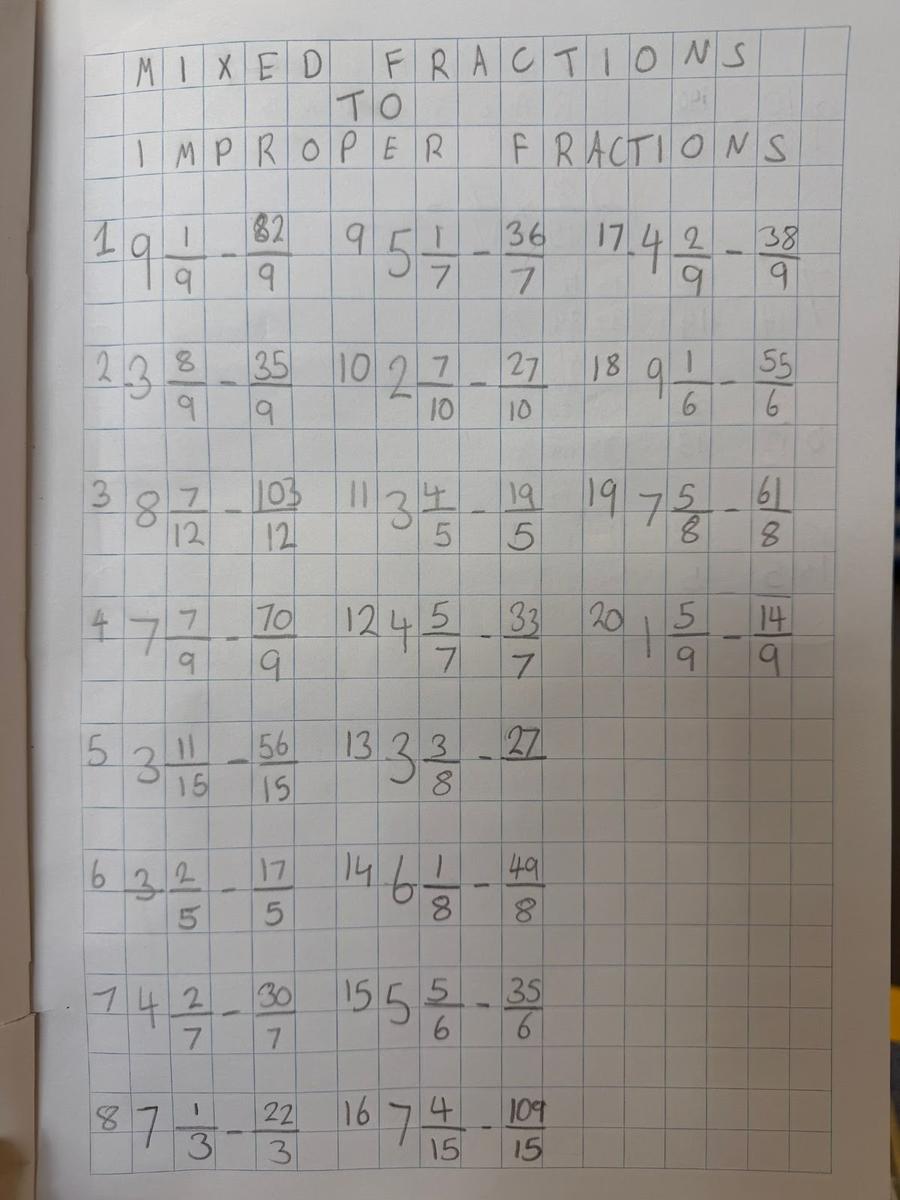 MIXED FRACTIONS
TO
IMPROPER FRACTIONS
1 9 1/9 - 82/9
2 3 8/9 - 35/9
3 8 7/12 - 103/12
4 7 7/9 - 70/9
5 3 11/15 - 56/15
6 3 2/5 - 17/5
7 4 2/7 - 30/7
8 7 1/3 - 22/3
9 5 1/7 - 36/7
10 2 7/10 - 27/10
11 3 4/5 - 19/5
12 4 5/7 - 33/7
13 3 3/8 - 27/
14 6 1/8 - 49/8
15 5 5/6 - 35/6
16 7 4/15 - 109/15
17. 4 2/9 - 38/9
18 9 1/6 - 55/6
19 7 5/8 - 61/8
20 1 5/9 - 14/9